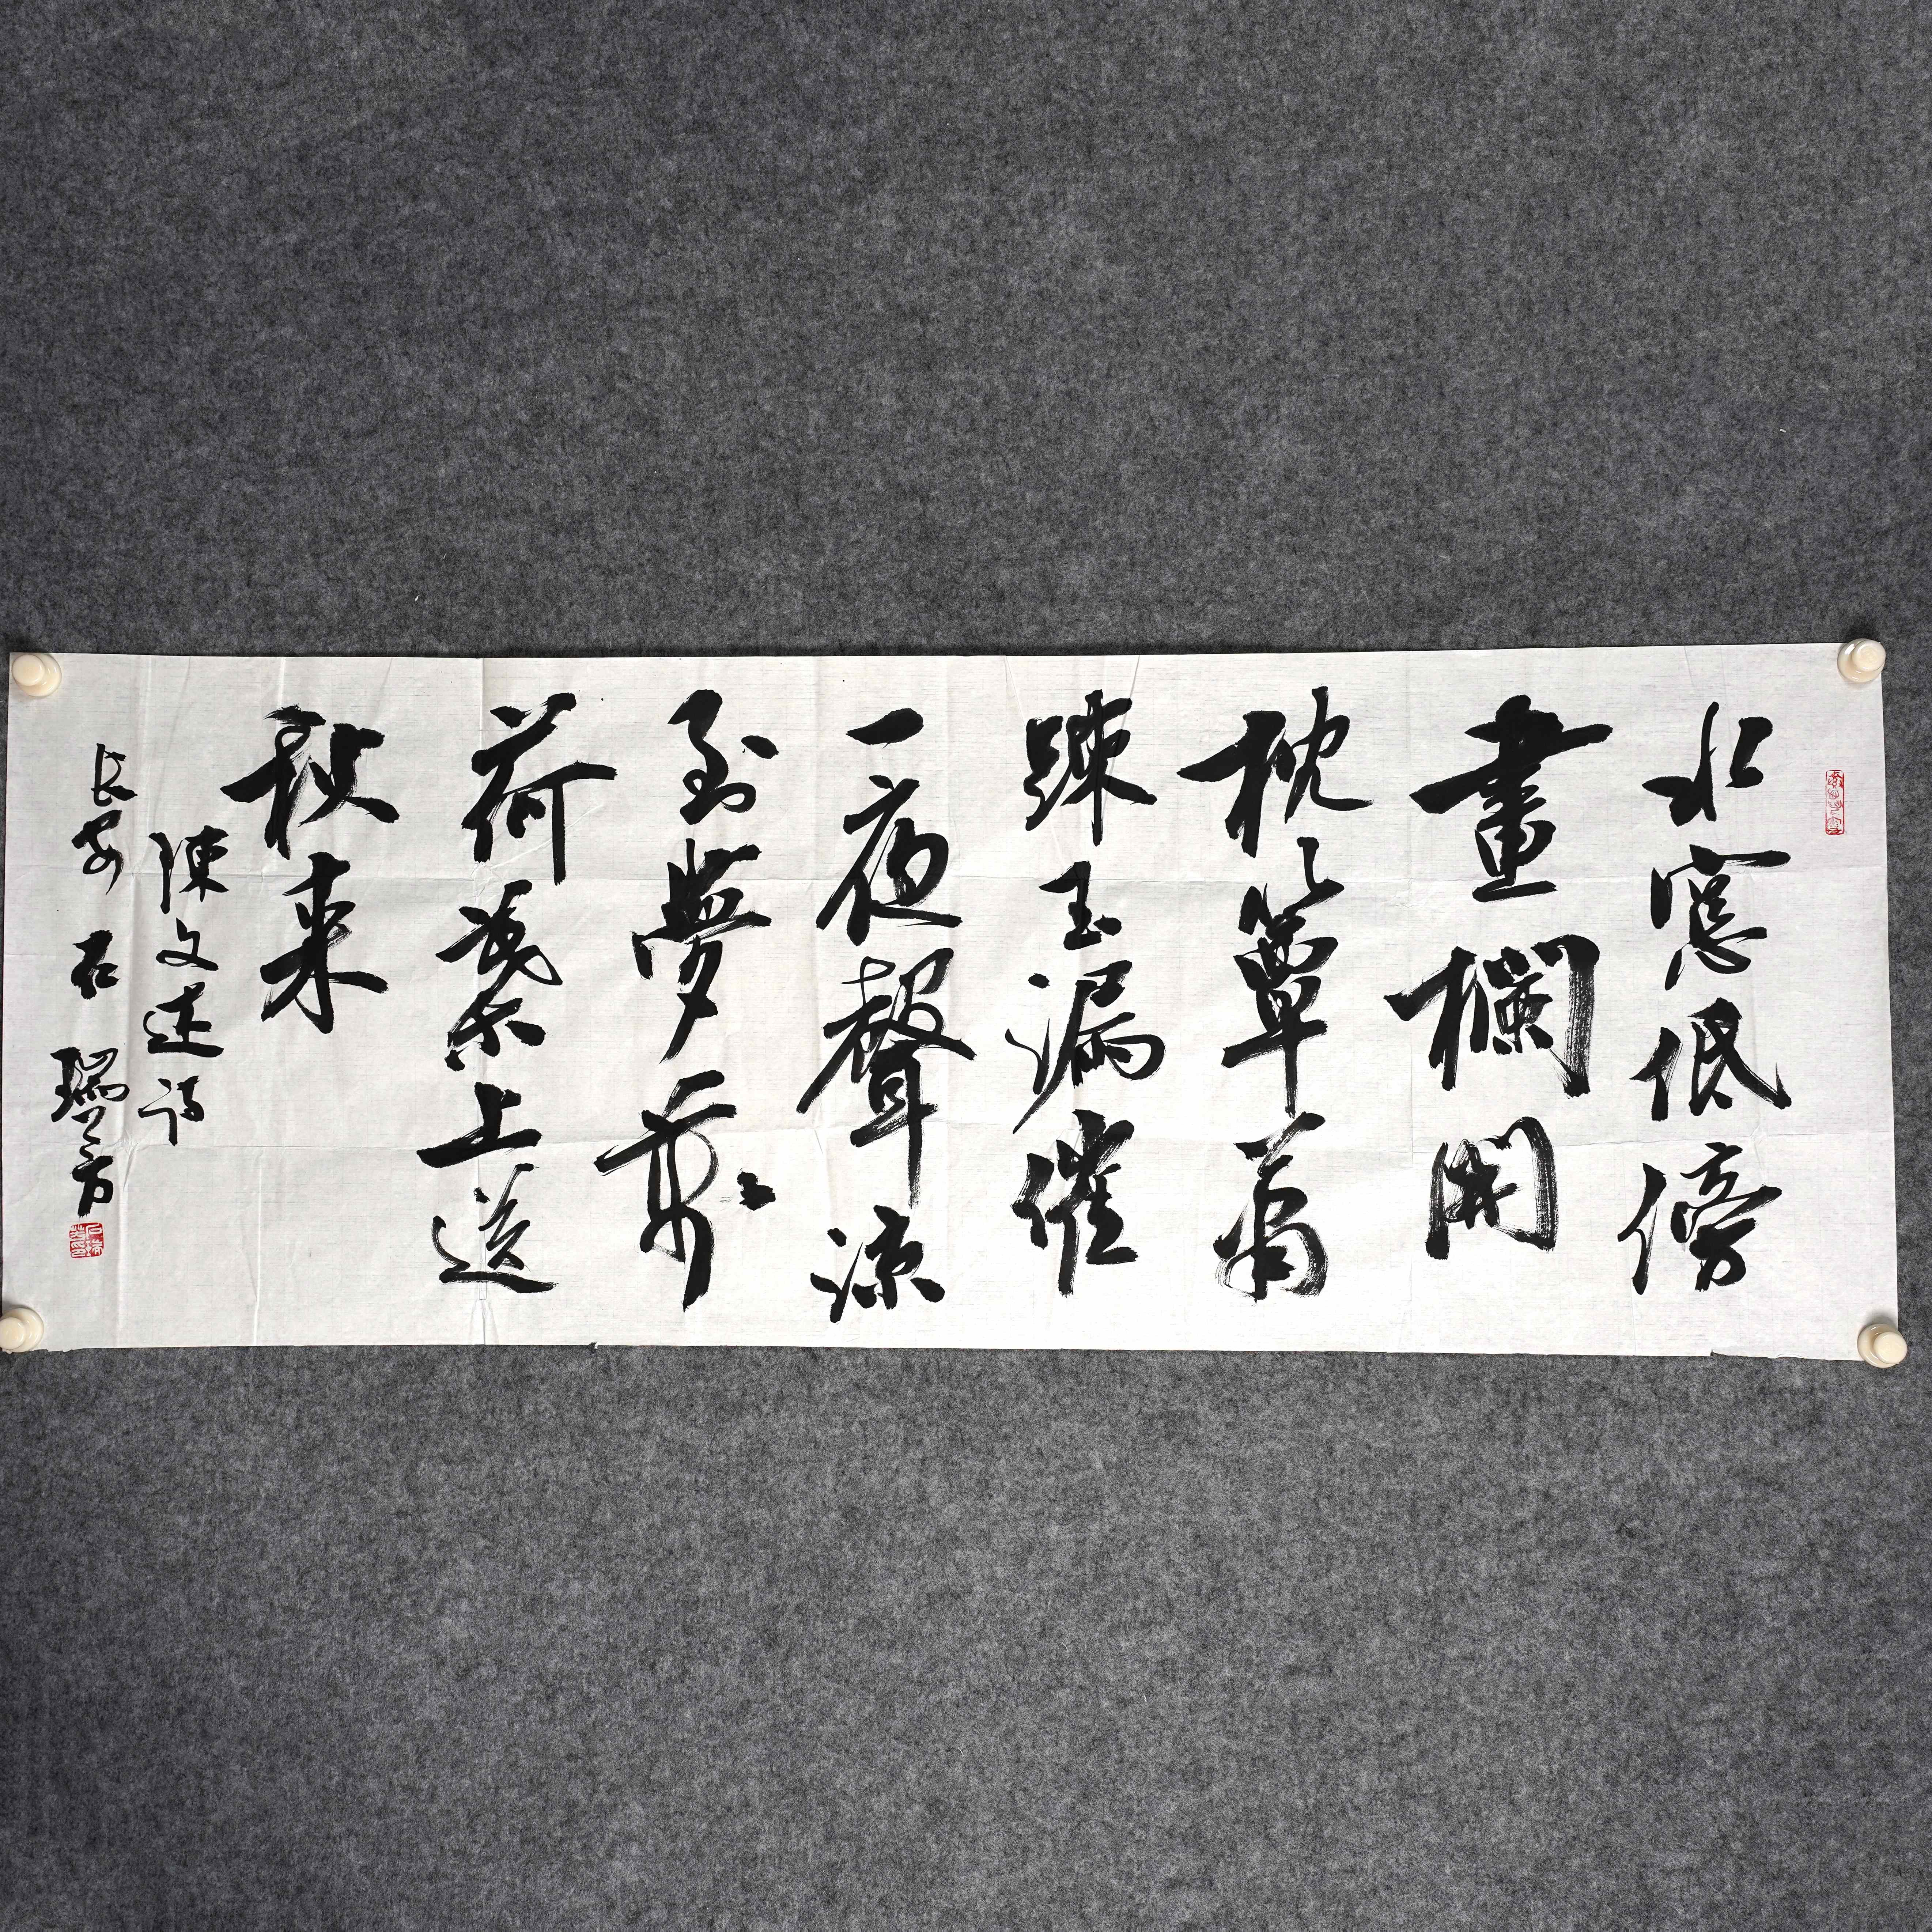 水窓低傍
畫欄開
枕簟蕭
疎玉漏催
一夜聲涼
到夢萬
荷葉上送
秋来
陳文述詩
長安石瑞芳